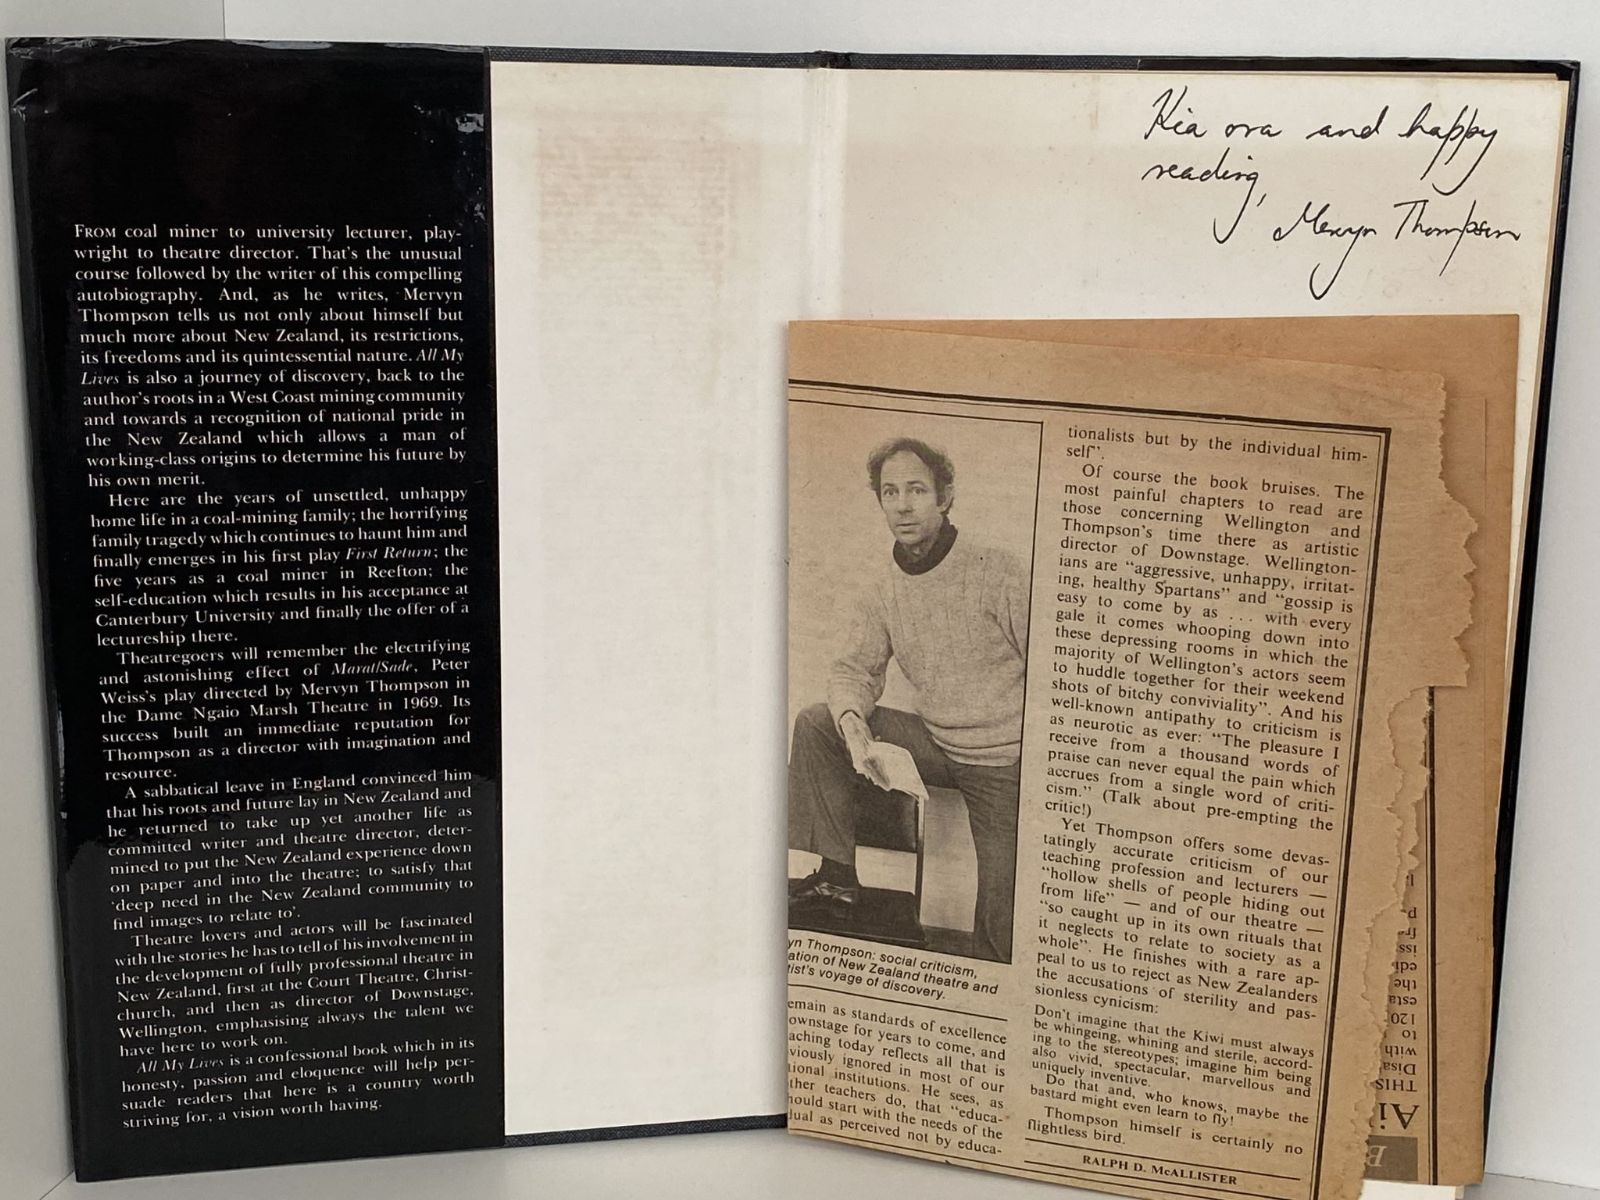 FROM coal miner to university lecturer, play-
wright to theatre director. That's the unusual
course followed by the writer of this compelling
autobiography. And, as he writes, Mervyn
Thompson tells us not only about himself but
much more about New Zealand, its restrictions,
its freedoms and its quintessential nature. All My
Lives is also a journey of discovery, back to the
author's roots in a West Coast mining community
and towards a recognition of national pride in
the New Zealand which allows a man of
working-class origins to determine his future by
his own merit.
Here are the years of unsettled, unhappy
home life in a coal-mining family; the horrifying
family tragedy which continues to haunt him and
finally emerges in his first play First Return; the
five years as a coal miner in Reefton; the
self-education which results in his acceptance at
Canterbury University and finally the offer of a
lectureship there.
Theatregoers will remember the electrifying
and astonishing effect of Marat/Sade, Peter
Weiss's play directed by Mervyn Thompson in
the Dame Ngaio Marsh Theatre in 1969. Its
success built an immediate reputation for
Thompson as a director with imagination and
resource.
A sabbatical leave in England convinced him
that his roots and future lay in New Zealand and
he returned to take up yet another life as
committed writer and theatre director, deter-
mined to put the New Zealand experience down
on paper and into the theatre; to satisfy that
'deep need in the New Zealand community to
find images to relate to'.
Theatre lovers and actors will be fascinated
with the stories he has to tell of his involvement in
the development of fully professional theatre in
New Zealand, first at the Court Theatre, Christ-
church, and then as director of Downstage,
Wellington, emphasising always the talent we
have here to work on.
All My Lives is a confessional book which in its
honesty, passion and eloquence will help per-
suade readers that here is a country worth
striving for, a vision worth having.
Kia ora and happy
reading,
Mervyn Thompson
yn Thompson: social criticism,
ation of New Zealand theatre and
tist's voyage of discovery.
emain as standards of excellence
ownstage for years to come, and
aching today reflects all that is
viously ignored in most of our
tional institutions. He sees, as
ther teachers do, that "educa-
hould start with the needs of the
dual as perceived not by educa-
tionalists but by the individual him-
self".
Of course the book bruises. The
most painful chapters to read are
those concerning Wellington and
Thompson's time there as artistic
director of Downstage. Wellington-
ians are "aggressive, unhappy, irritat-
ing, healthy Spartans" and "gossip is
easy to come by as . . . with every
gale it comes whooping down into
these depressing rooms in which the
majority of Wellington's actors seem
to huddle together for their weekend
shots of bitchy conviviality". And his
well-known antipathy to criticism is
as neurotic as ever: "The pleasure I
receive from a thousand words of
praise can never equal the pain which
accrues from a single word of criti-
cism." (Talk about pre-empting the
critic!)
Yet Thompson offers some devas-
tatingly accurate criticism of our
teaching profession and lecturers —
"hollow shells of people hiding out
from life" — and of our theatre —
"so caught up in its own rituals that
it neglects to relate to society as a
whole". He finishes with a rare ap-
peal to us to reject as New Zealanders
the accusations of sterility and pas-
sionless cynicism:
Don't imagine that the Kiwi must always
be whingeing, whining and sterile, accord-
ing to the stereotypes; imagine him being
also vivid, spectacular, marvellous and
uniquely inventive.
Do that and, who knows, maybe the
bastard might even learn to fly!
Thompson himself is certainly no
flightless bird.
RALPH D. McALLISTER
THIS
Disa
with
to
120
esta
the
edi
iss